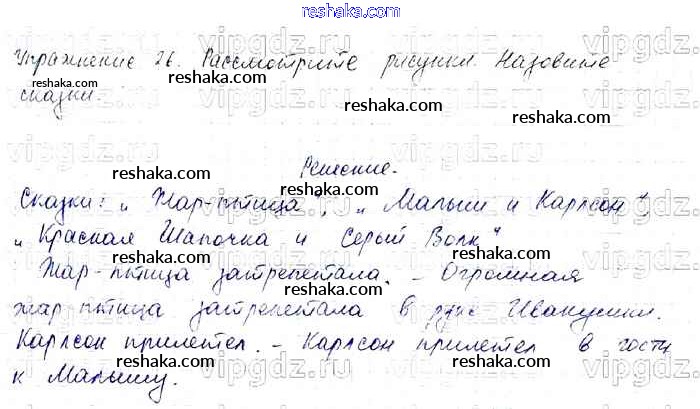 reshaka.com
Упражнение 26. Рассмотрите рисунки. Назовите
сказки.
Решение.
Сказки: „Жар-птица", „Малыш и Карлсон",
„Красная Шапочка и Серый Волк"
Жар-птица затрепетала. - Огромная
жар-птица затрепетала в руке Иванушки.
Карлсон прилетел. - Карлсон прилетел в гости
к Малышу.